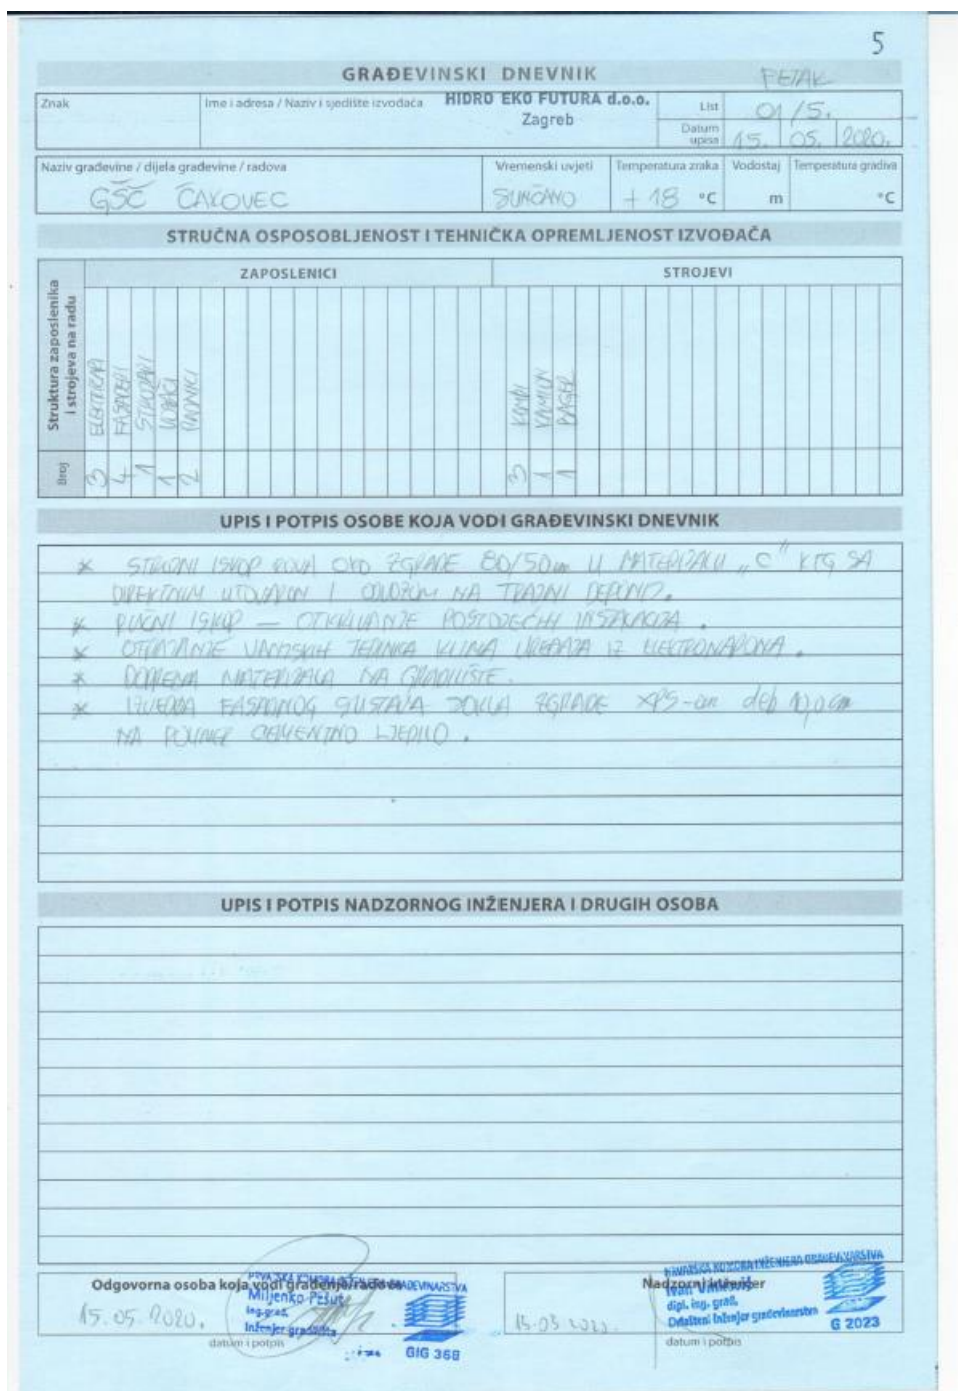 5
GRAĐEVINSKI DNEVNIK
PETAK
Znak
Ime i adresa / Naziv i sjedište izvođača
HIDRO EKO FUTURA d.o.o.
Zagreb
List
01/5.
Datum upisa
15. 05. 2020.
Naziv građevine / dijela građevine / radova
GŠČ ČAKOVEC
Vremenski uvjeti
SUNČANO
Temperatura zraka
+18 °C
Vodostaj
m
Temperatura gradiva
°C
STRUČNA OSPOSOBLJENOST I TEHNIČKA OPREMLJENOST IZVOĐAČA
Struktura zaposlenika i strojeva na radu
ZAPOSLENICI
STROJEVI
ELEKTRIČARI
FASADERI
STROJARI
VOZAČI
RADNICI
KOMBI
KAMION
BAGER
Broj
3 4 1 1 2 3 1 1
UPIS I POTPIS OSOBE KOJA VODI GRAĐEVINSKI DNEVNIK
* STROJNI ISKOP ROVA OKO ZGRADE 80/50cm U MATERIJALU „C" KTG SA
DIREKTNIM UTOVAROM I ODVOZOM NA TRAJNI DEPONIJ.
* RUČNI ISKOP — OTKRIVANJE POSTOJEĆIH INSTALACIJA.
* VANJSKIH KLIMA UREĐAJA IZ
* DOPREMA MATERIJALA NA GRADILIŠTE.
* IZVEDBA FASADNOG SUSTAVA ZGRADE XPS-om deb 10,0 cm
NA CEMENTNO LJEPILO.
UPIS I POTPIS NADZORNOG INŽENJERA I DRUGIH OSOBA
Odgovorna osoba koja vodi građenje/radove
15.05.2020.
datum i potpis
HRVATSKA KOMORA INŽENJERA GRAĐEVINARSTVA
Miljenko
ing.građ.
Inženjer gradilišta
GIG 368
Nadzorni inženjer
datum i potpis
HRVATSKA KOMORA INŽENJERA GRAĐEVINARSTVA
Ivan
dipl. ing. građ.
Ovlašteni inženjer građevinarstva
G 2023